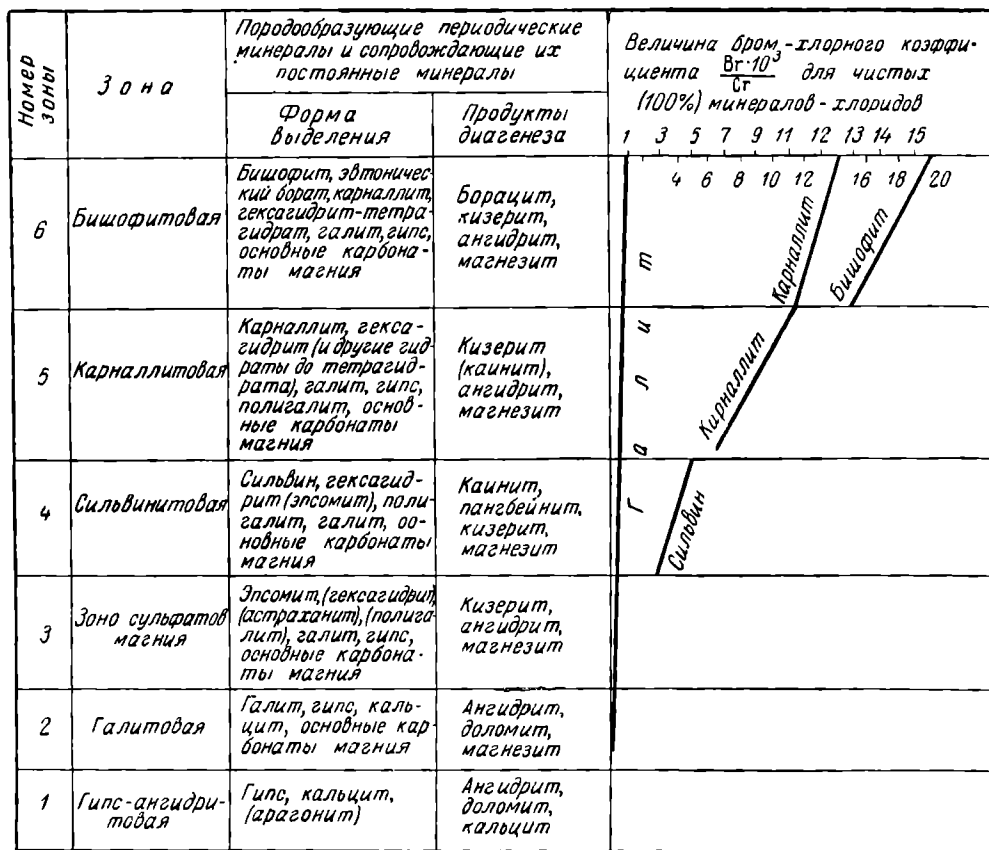 Номер зоны
Зона
Породообразующие периодические
минералы и сопровождающие их
постоянные минералы
Форма
выделения
Продукты
диагенеза
Величина бром-хлорного коэффи-
циента Br·10³/Cr для чистых
(100%) минералов-хлоридов
1 3 5 7 9 11 12 13 14 15
4 6 8 10 12 16 18 20
6
Бишофитовая
Бишофит, эвтониче-
ский борат, карналлит,
гексагидрит-тетра-
гидрат, галит, гипс,
основные карбона-
ты магния
Борацит,
кизерит,
ангидрит,
магнезит
Карналлит
Бишофит
5
Карналлитовая
Карналлит, гекса-
гидрит (и другие гид-
раты до тетрагид-
рата), галит, гипс,
полигалит, основ-
ные карбонаты
магния
Кизерит
(каинит),
ангидрит,
магнезит
Кирналлит
4
Сильвинитовая
Сильвин, гексагид-
рит (эпсомит), поли-
галит, галит, оо-
новные карбонаты
магния
Каинит,
пангбейнит,
кизерит,
магнезит
Сильвин
Галит
3
Зоно сульфатов
магния
Эпсомит, (гексагидрит),
(астраханит), (полига-
лит), галит, гипс,
основные карбона-
ты магния
Кизерит,
ангидрит,
магнезит
2
Галитовая
Галит, гипс, каль-
цит, основные кар-
бонаты магния
Ангидрит,
доломит,
магнезит
1
Гипс-ангидри-
товая
Гипс, кальцит,
(арагонит)
Ангидрит,
доломит,
кальцит